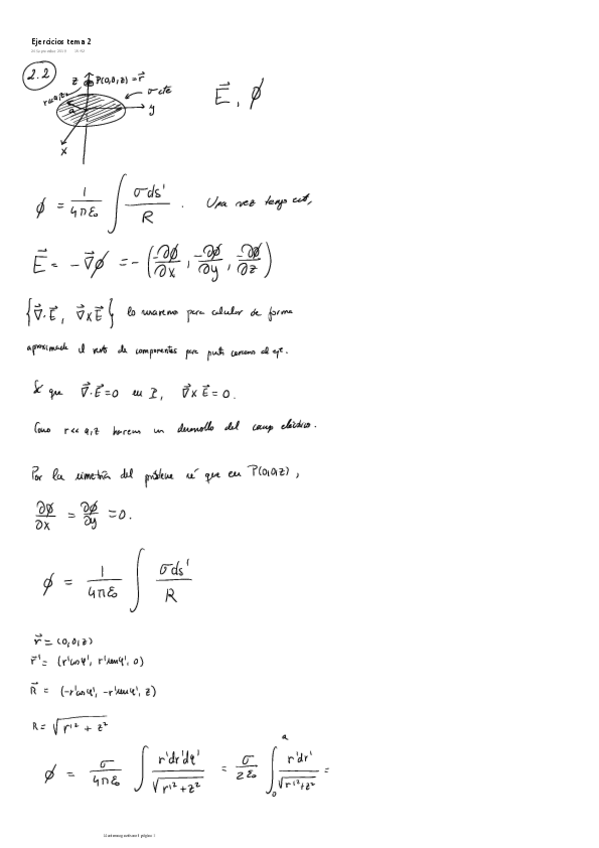 Ejercicios tema 2
2.2
z P(0,0,z) = r⃗
r<<a,z σ cte
a y
x
E⃗, ϕ
ϕ = 1/(4πε₀) ∫ σds'/R . Una vez tengo
E⃗ = -∇⃗ϕ = -(-∂ϕ/∂x, -∂ϕ/∂y, -∂ϕ/∂z)
{∇⃗·E⃗, ∇⃗×E⃗} lo usaremos para calcular de forma
aproximada el resto de componentes para puntos cercanos al eje.
Se que ∇⃗·E⃗=0 en P, ∇⃗×E⃗=0.
Como r<<a,z haremos un desarrollo del campo eléctrico.
Por la simetría del problema sé que en P(0,0,z),
∂ϕ/∂x = ∂ϕ/∂y = 0.
ϕ = 1/(4πε₀) ∫ σds'/R
r⃗ = (0,0,z)
r⃗' = (r'cosφ', r'senφ', 0)
R⃗ = (-r'cosφ', -r'senφ', z)
R = √(r'² + z²)
ϕ = σ/(4πε₀) ∫ r'dr'dφ'/√(r'²+z²) = σ/(2ε₀) ∫₀ᵃ r'dr'/√(r'²+z²) =